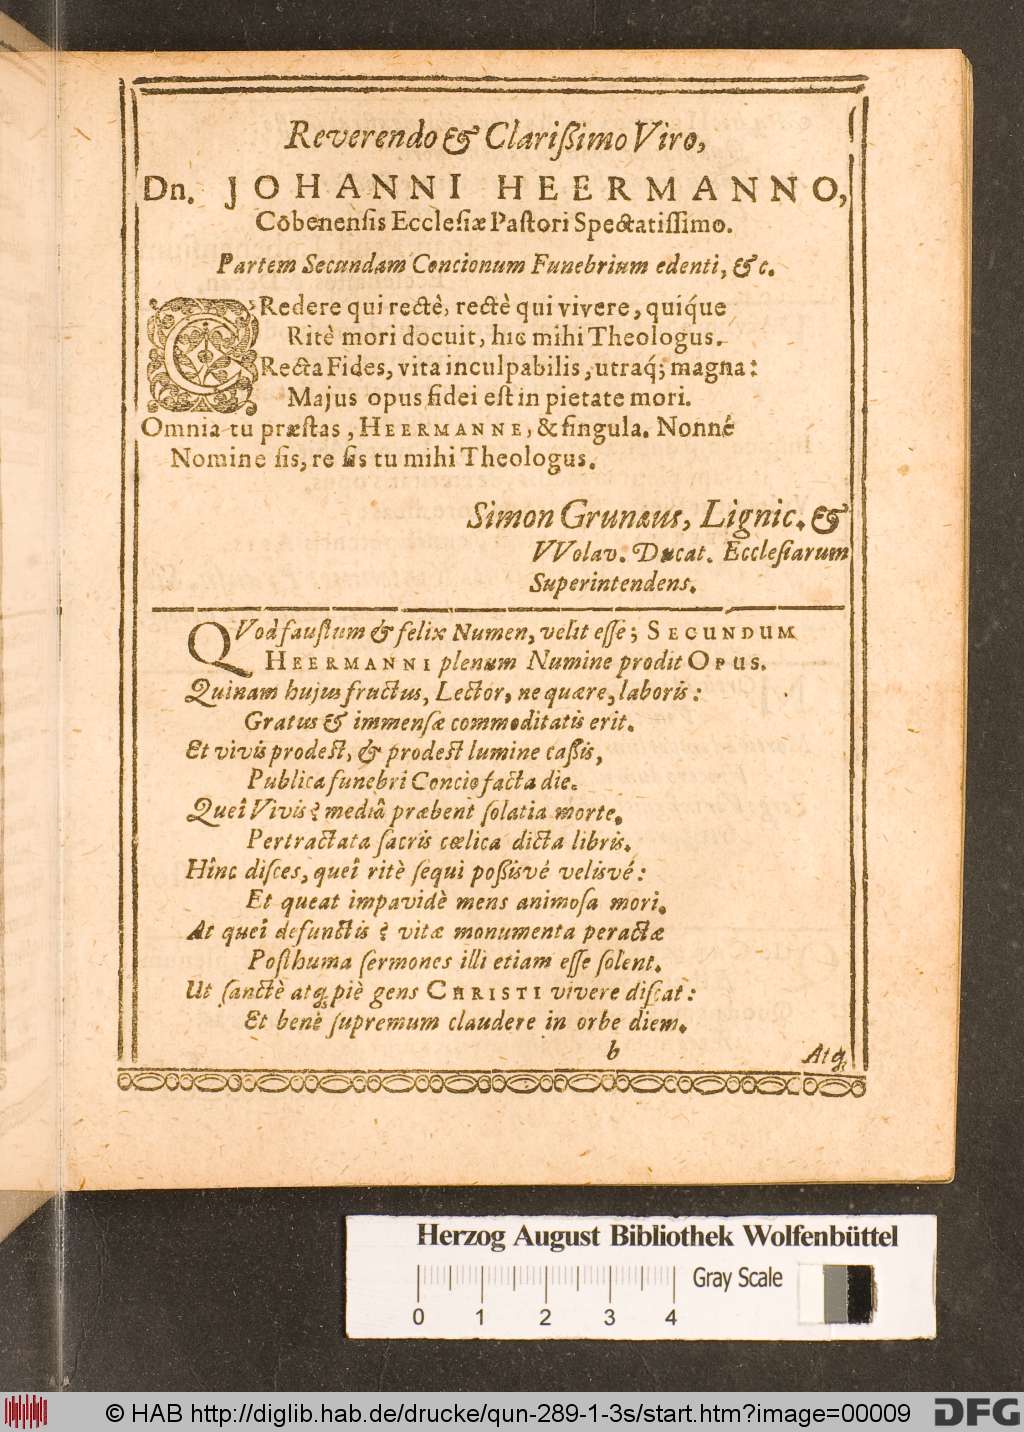 Reverendo & Clarißimo Viro,
Dn. JOHANNI HEERMANNO,
Cōbenensis Ecclesiæ Pastori Spectatissimo.
Partem Secundam Concionum Funebrium edenti, &c.
CRedere qui rectè, rectè qui vivere, quiq́ue
Ritè mori docuit, hic mihi Theologus.
Recta Fides, vita inculpabilis, utraq́; magna:
Majus opus fidei est in pietate mori.
Omnia tu præstas, HEERMANNE, & singula. Nonné
Nomine sis, re sis tu mihi Theologus.
Simon Grunæus, Lignic. &
VVolav. Ducat. Ecclesiarum
Superintendens.
QVod faustum & felix Numen, velit esse; SECUNDUM
HEERMANNI plenum Numine prodit OPUS.
Quinam hujus fructus, Lector, ne quære, laboris:
Gratus & immensæ commoditatis erit.
Et vivis prodest, & prodest lumine caßis,
Publica funebri Concio facta die.
Queî Vivis è mediâ præbent solatia morte,
Pertractata sacris cœlica dicta libris.
Hînc disces, queî ritè sequi poßisvé velisvé:
Et queat impavidè mens animosa mori.
At queî defunctis è vitæ monumenta peractæ
Posthuma sermones illi etiam esse solent.
Ut sanctè atq; piè gens CHRISTI vivere discat:
Et benè supremum claudere in orbe diem.
b
Atq;
Herzog August Bibliothek Wolfenbüttel
Gray Scale
0 1 2 3 4
© HAB http://diglib.hab.de/drucke/qun-289-1-3s/start.htm?image=00009
DFG